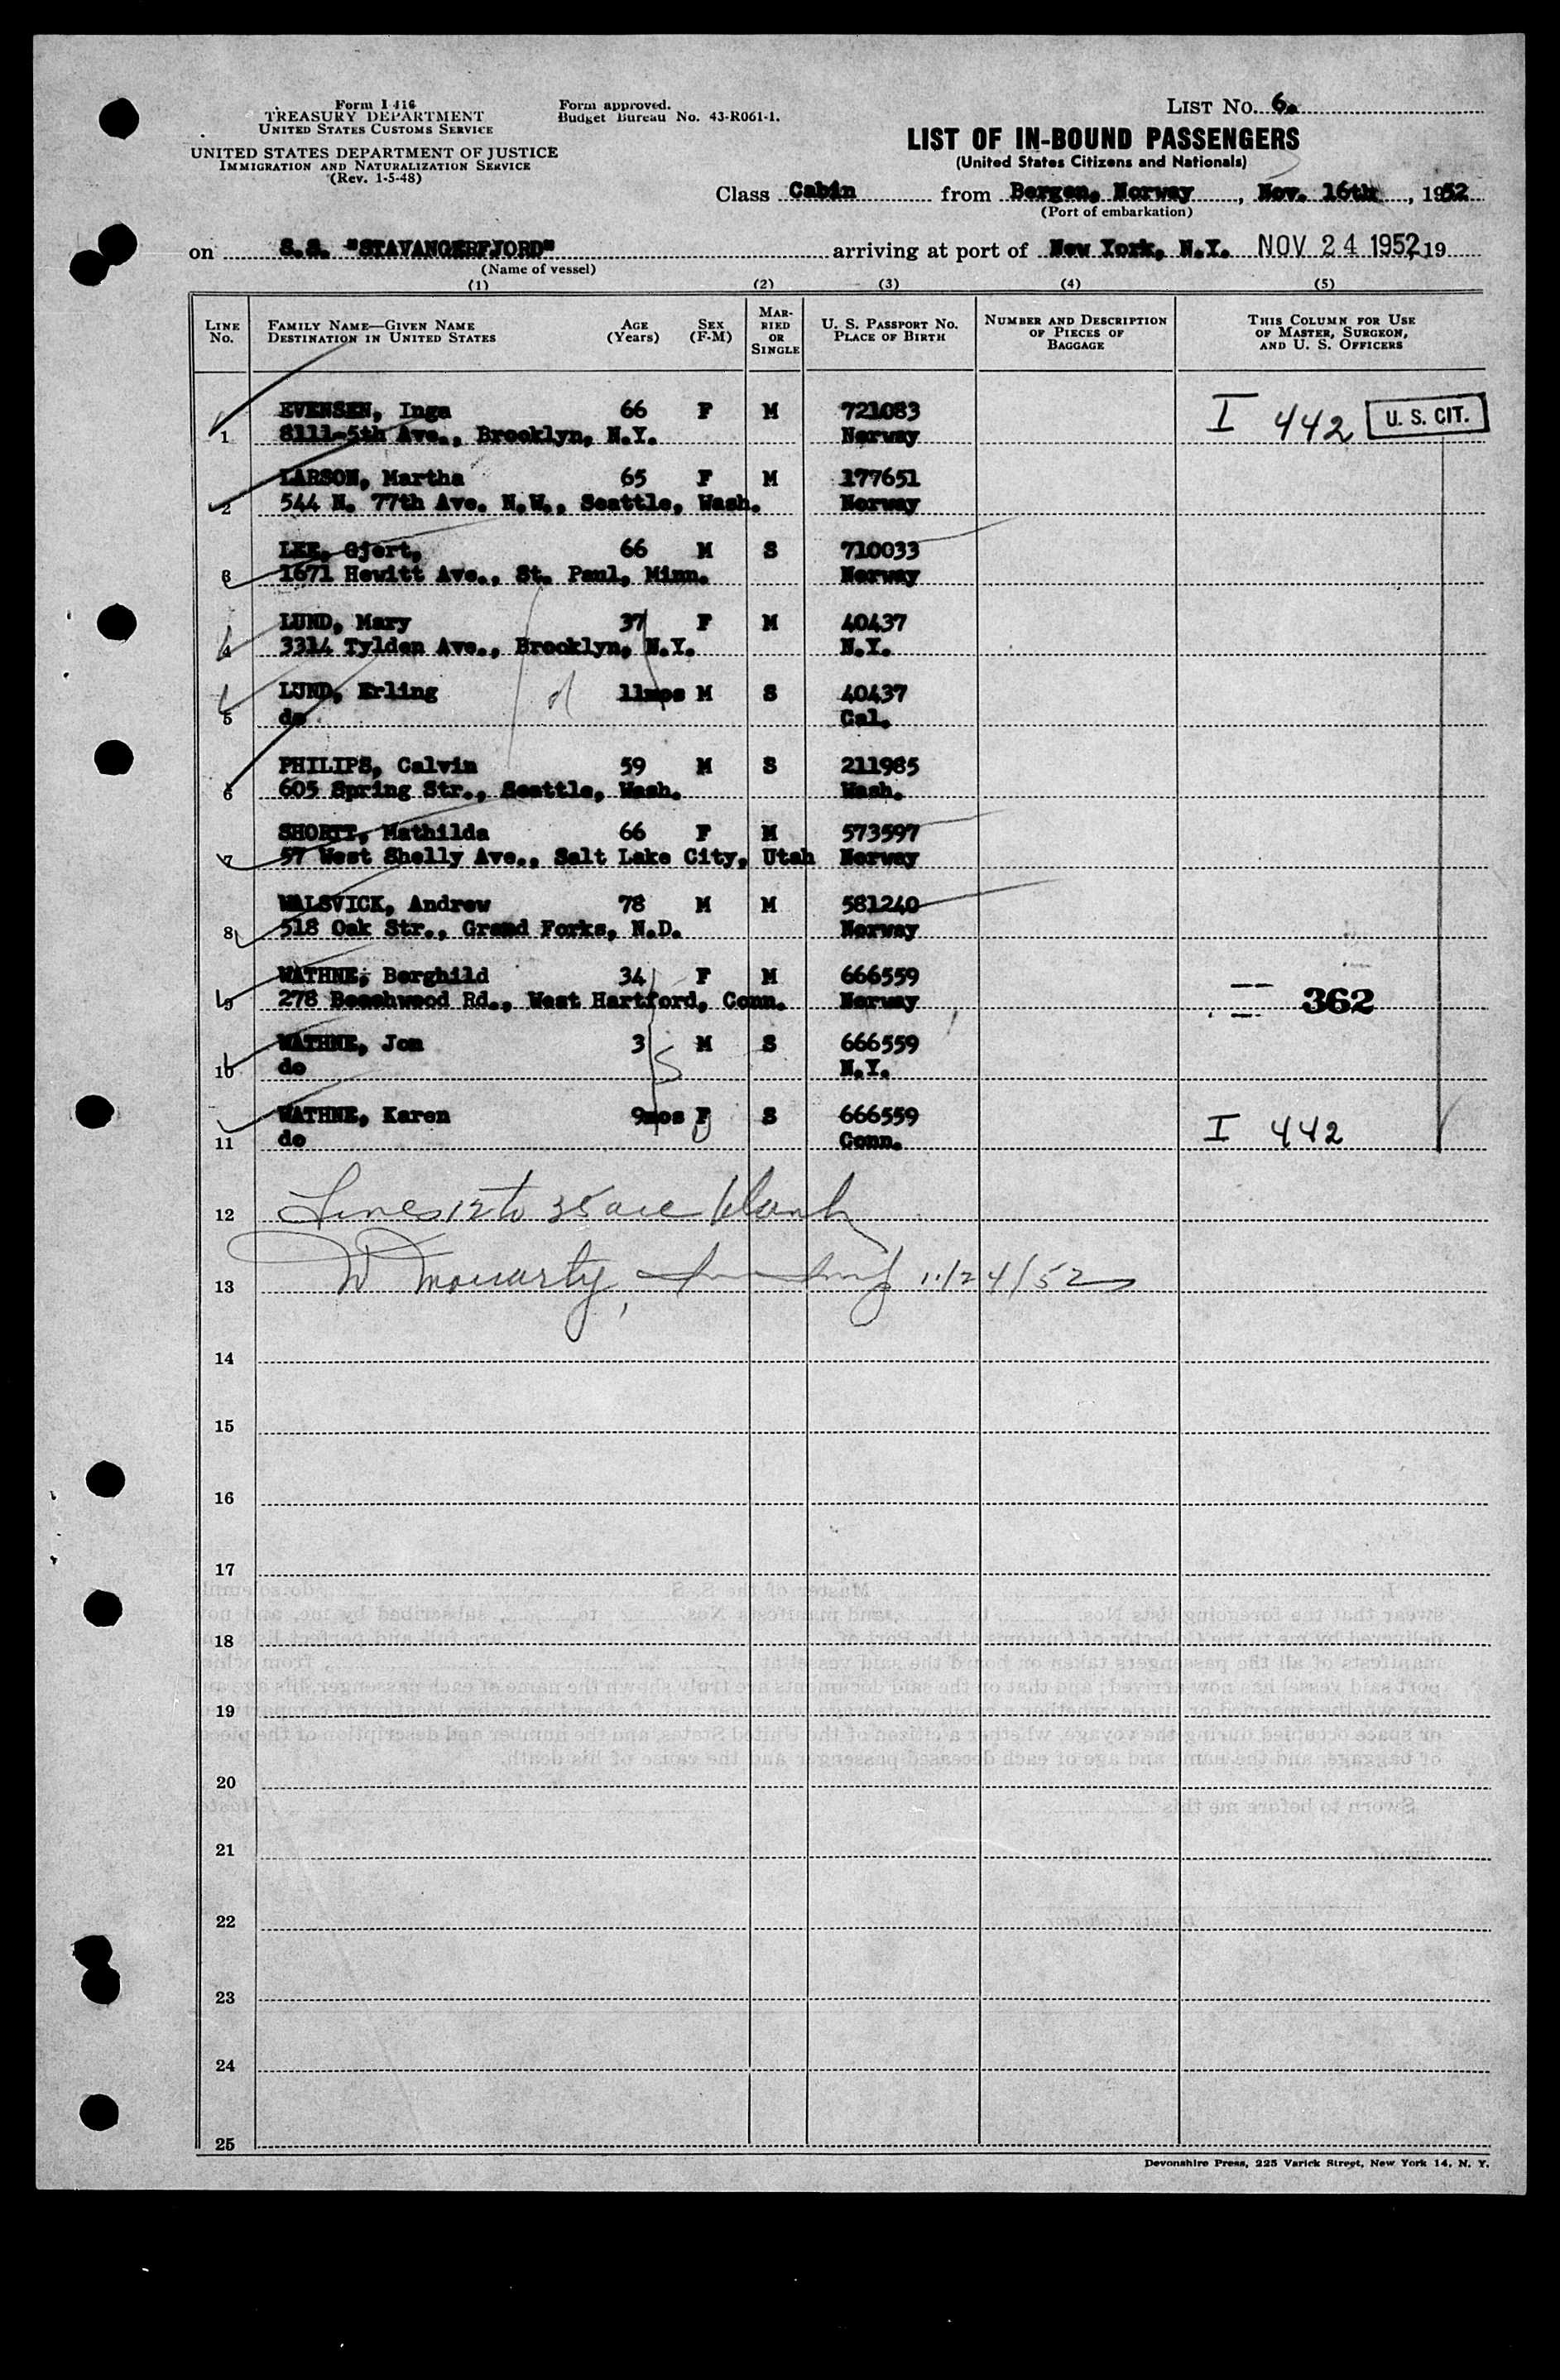 Form I 416
TREASURY DEPARTMENT
UNITED STATES CUSTOMS SERVICE
UNITED STATES DEPARTMENT OF JUSTICE
IMMIGRATION AND NATURALIZATION SERVICE
(Rev. 1-5-48)
Form approved.
Budget Bureau No. 43-R061-1.
LIST No. 6.
LIST OF IN-BOUND PASSENGERS
(United States Citizens and Nationals)
Class Cabin from Bergen, Norway, Nov. 16th, 1952
(Port of embarkation)
on S.S. "STAVANGERFJORD" arriving at port of New York, N.Y. NOV 24 1952 19
(Name of vessel)
(1) (2) (3) (4) (5)
LINE No. FAMILY NAME—GIVEN NAME DESTINATION IN UNITED STATES AGE (Years) SEX (F-M) MARRIED OR SINGLE U. S. PASSPORT No. PLACE OF BIRTH NUMBER AND DESCRIPTION OF PIECES OF BAGGAGE THIS COLUMN FOR USE OF MASTER, SURGEON, AND U. S. OFFICERS
EVENSEN, Inga 66 F M 721083 I 442 U. S. CIT.
1 8111-5th Ave., Brooklyn, N.Y. Norway
LARSON, Martha 65 F M 177651
2 544 N. 77th Ave. N.W., Seattle, Wash. Norway
LEE, Gjert, 66 M S 710033
3 1671 Hewitt Ave., St. Paul, Minn. Norway
LUND, Mary 37 F M 40437
4 3314 Tylden Ave., Brooklyn, N.Y. N.Y.
LUND, Erling 11mos M S 40437
5 do Cal.
PHILIPS, Calvin 59 M S 211985
6 605 Spring Str., Seattle, Wash. Wash.
SHORTT, Mathilda 66 F M 573597
7 57 West Shelly Ave., Salt Lake City, Utah Norway
WALSVICK, Andrew 78 M M 581240
8 518 Oak Str., Grand Forks, N.D. Norway
WATHNE, Borghild 34 F M 666559
9 278 Beechwood Rd., West Hartford, Conn. Norway 362
WATHNE, Jon 3 M S 666559
10 do N.Y.
WATHNE, Karen 9mos F S 666559
11 do Conn. I 442
12 Lines 12 to 25 are blank
13 W Moriarty, 11/24/52
14
15
16
17
18
19
20
21
22
23
24
25
Devonshire Press, 225 Varick Street, New York 14, N. Y.